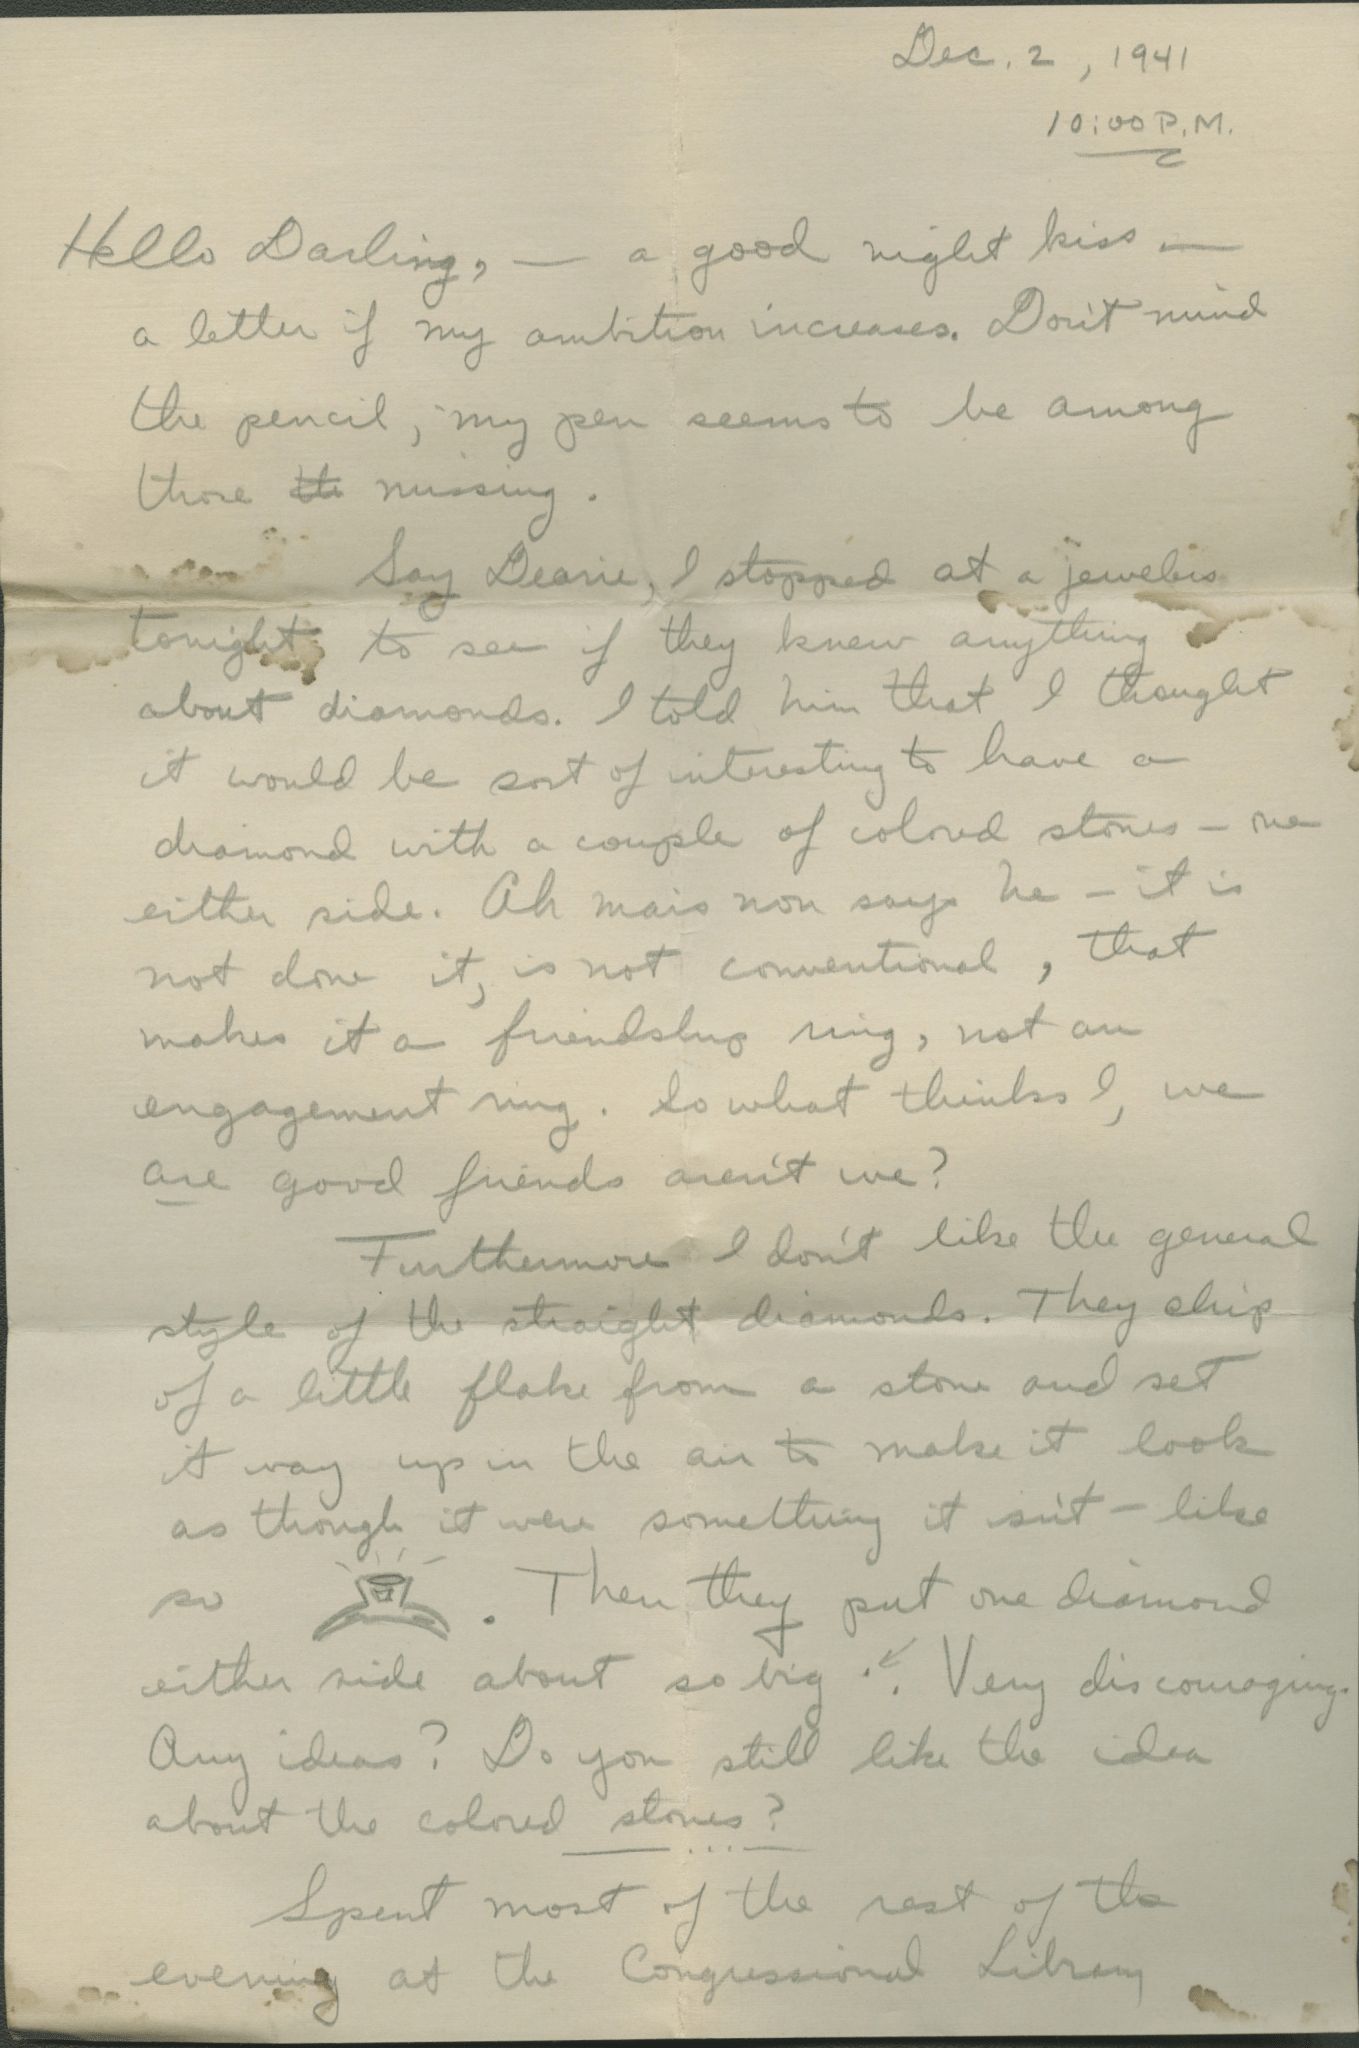 Dec. 2, 1941
10:00 P.M.
Hello Darling, — a good night kiss —
a letter if my ambition increases. Don't mind
the pencil, my pen seems to be among
those the missing.
Say Dearie, I stopped at a jewelers
tonight to see if they knew anything
about diamonds. I told him that I thought
it would be sort of interesting to have a
diamond with a couple of colored stones – one
either side. Ah mais non says he – it is
not done it, is not conventional, that
makes it a friendship ring, not an
engagement ring. So what thinks I, we
are good friends aren't we?
Furthermore I don't like the general
style of the straight diamonds. They chip
of a little flake from a stone and set
it way up in the air to make it look
as though it were something it isn't – like
so . Then they put one diamond
either side about so big . Very discouraging.
Any ideas? Do you still like the idea
about the colored stones?
Spent most of the rest of the
evening at the Congressional Library